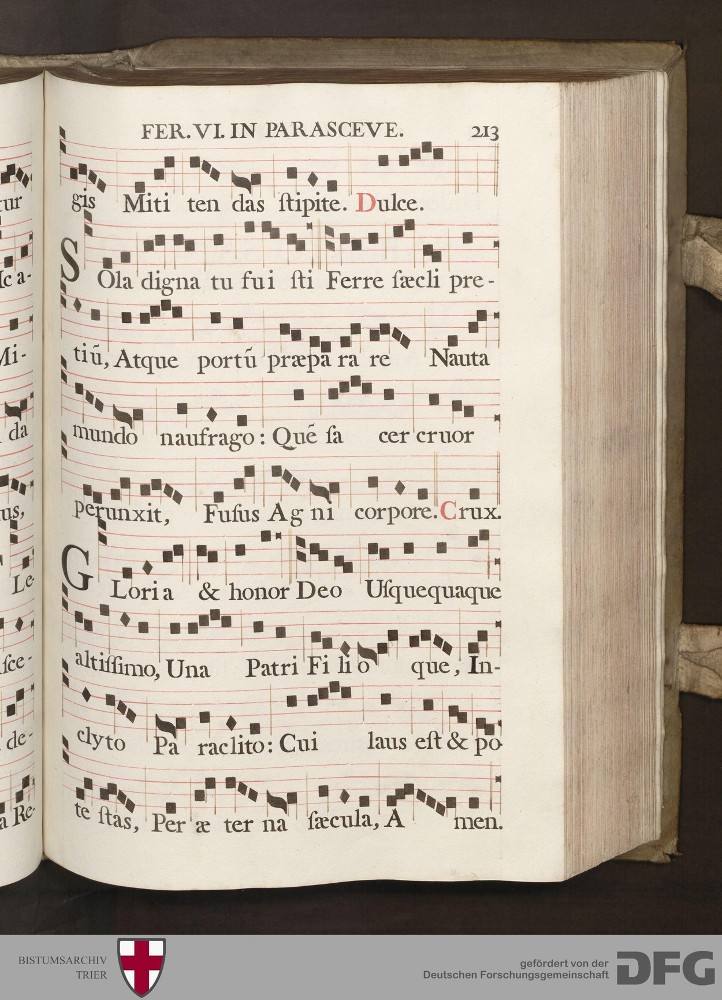 FER. VI. IN PARASCEVE. 213
gis Miti ten das ſtipite. Dulce.
SOla digna tu fui ſti Ferre ſæcli pre-
tiū, Atque portū præpa ra re Nauta
mundo naufrago: Quē ſa cer cruor
perunxit, Fuſus Ag ni corpore. Crux.
GLoria & honor Deo Uſquequaque
altiſſimo, Una Patri Fi li o que, In-
clyto Pa raclito: Cui laus eſt & po
te ſtas, Per æ ter na ſæcula, A men.
ur
Ic a-
Mi-
da
us,
Le-
ſce-
de-
a Re-
BISTUMSARCHIV
TRIER
gefördert von der
Deutschen Forschungsgemeinschaft
DFG